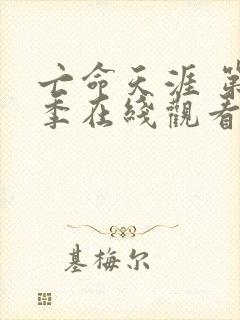 亡命天涯 第
季在綫觀看
基梅尔